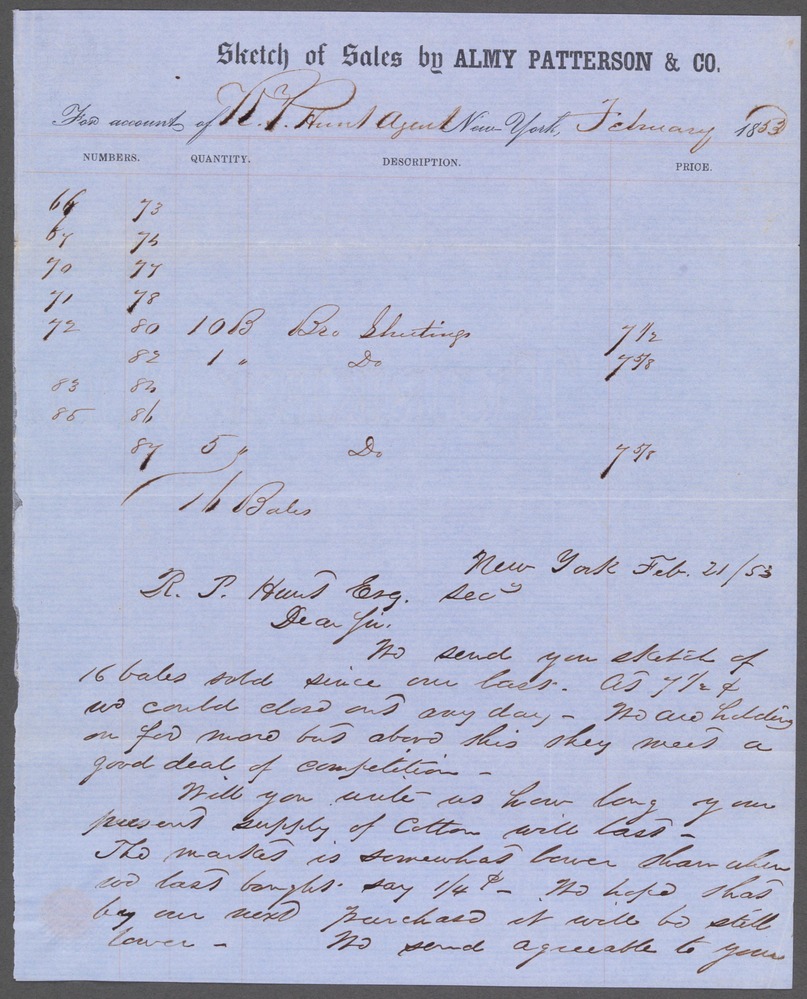 Sketch of Sales by ALMY PATTERSON & CO.
For account of R. P. Hunt Agent New-York, February 1853
NUMBERS. QUANTITY. DESCRIPTION. PRICE.
66 73
67 75
70 77
71 78
72 80 10 B Bro Sheetings 7 1/2
82 1 " Do 7 5/8
83 84
85 86
87 5 " Do 7 5/8
16 Bales
New York Feb. 21/53
R. P. Hunt Esq. Secy
Dear Sir.
We send you sketch of
16 bales sold since our last. At 7 1/2 ¢
we could close out any day - We are holding
on for more but above this they meet a
good deal of competition -
Will you write us how long your
present supply of Cotton will last -
The market is somewhat lower than when
we last bought say 1/4 ¢ - We hope that
by our next purchase it will be still
lower - We send agreeable to your